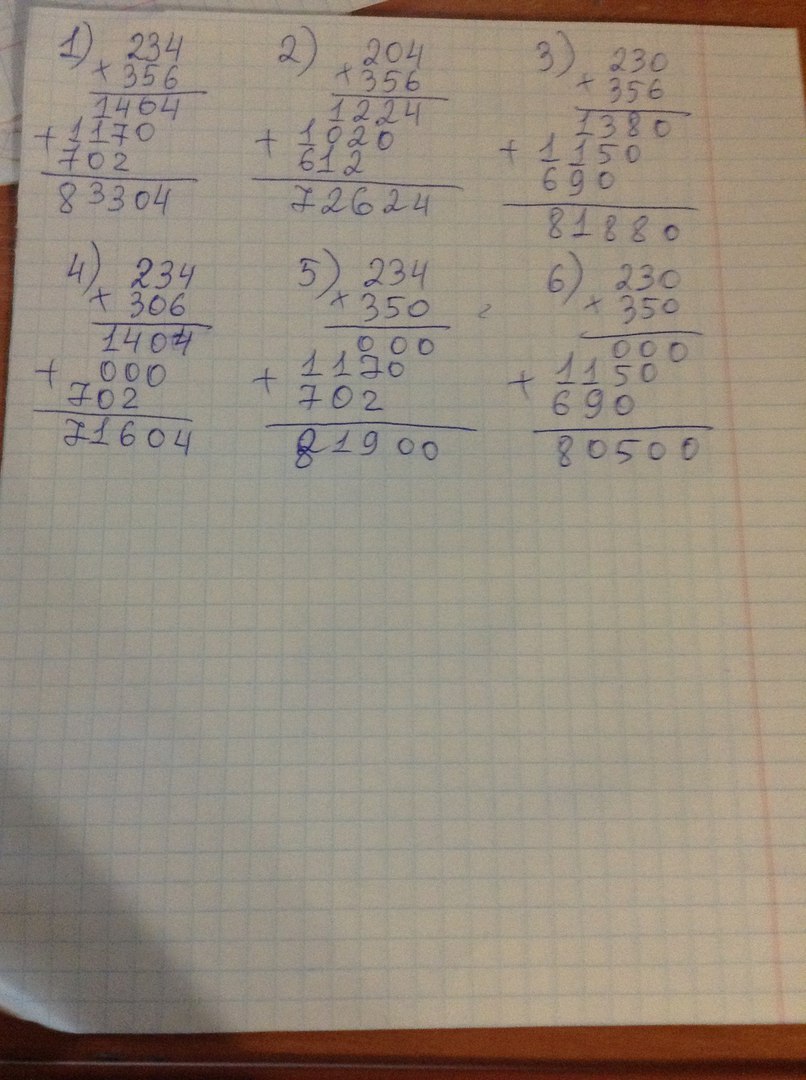 1) 234
× 356
1404
+ 1170
702
83304
2) 204
× 356
1224
+ 1020
612
72624
3) 230
× 356
1380
+ 1150
690
81880
4) 234
× 306
1404
+ 000
702
71604
5) 234
× 350
000
+ 1170
702
81900
6) 230
× 350
000
+ 1150
690
80500